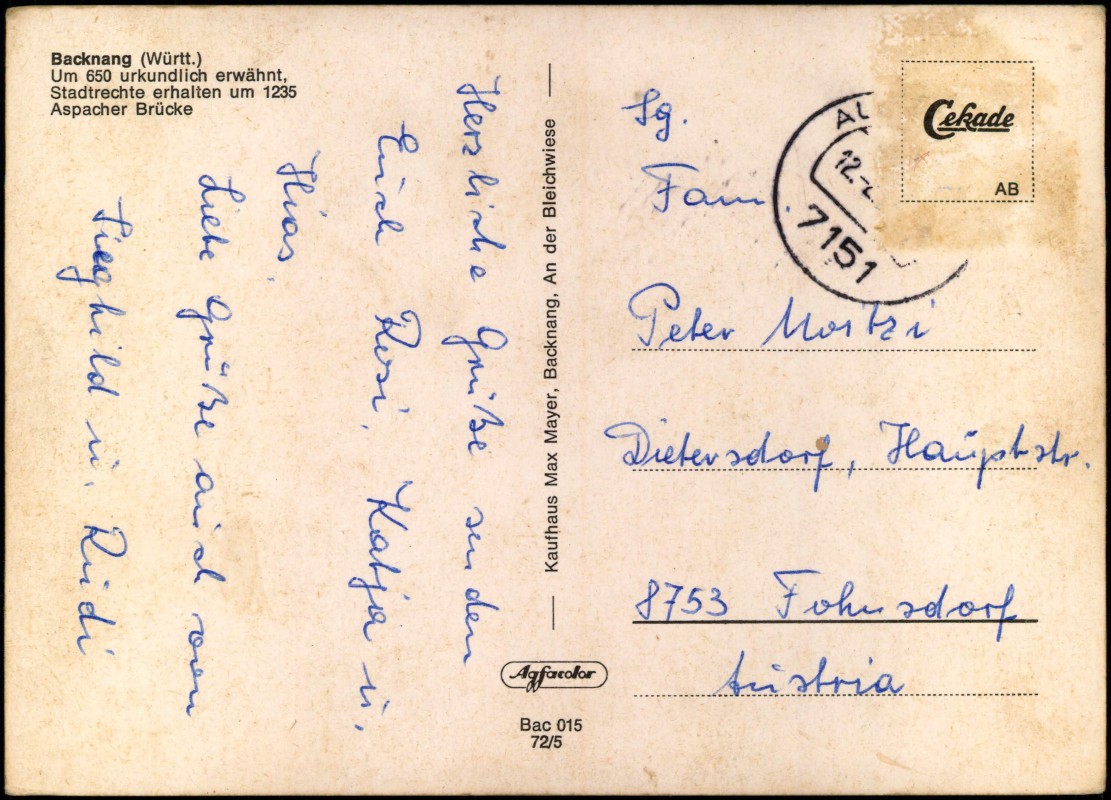 Backnang (Württ.)
Um 650 urkundlich erwähnt,
Stadtrechte erhalten um 1235
Aspacher Brücke
Herzliche Grüße senden
Euch Rosi, Katja u.
Hias.
Liebe Grüße auch von
Sieghild u. Rudi
Kaufhaus Max Mayer, Backnang, An der Bleichwiese
Agfacolor
Bac 015
72/5
Cekade
AB
AU
12.-2
7151
Sg.
Fam.
Peter Moitzi
Dietersdorf, Hauptstr.
8753 Fohnsdorf
Austria